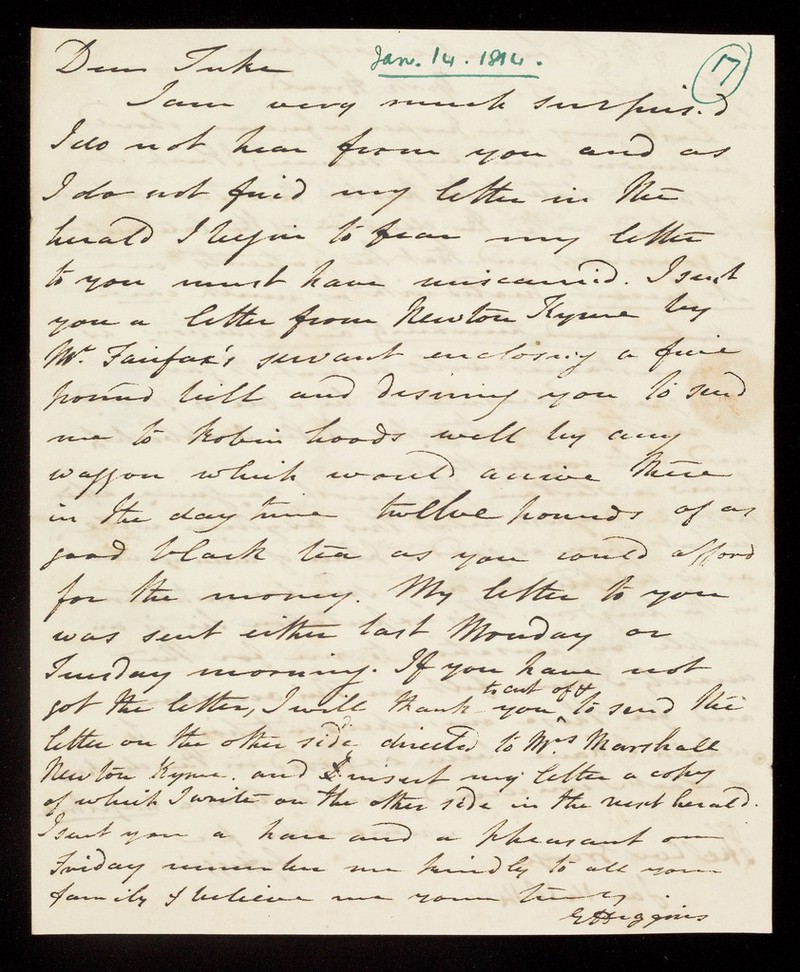 Jan. 14. 1814.
17
Dear Tuke
I am very much surprised
I do not hear from you and as
I do not find my letter in the
herald I begin to fear my letter
to you must have miscarried. I sent
you a letter from Newton Kyme by
Mr. Fairfax's servant enclosing a five
pound bill and desiring you to send
me to Robin hoods well by any
waggon which would arrive there
in the day time twelve pounds of as
good black tea as you could afford
for the money. My letter to you
was sent either last Monday or
Tuesday morning. If you have not
got the letter, I will thank you to cut off & to send the
letter on the other side directed to Mrs Marshall
Newton Kyme. and insert my letter a copy
of which I write on the other side in the next herald.
I sent you a hare and a pheasant on
Friday remember me kindly to all your
family & believe me yours truly
G Higgins